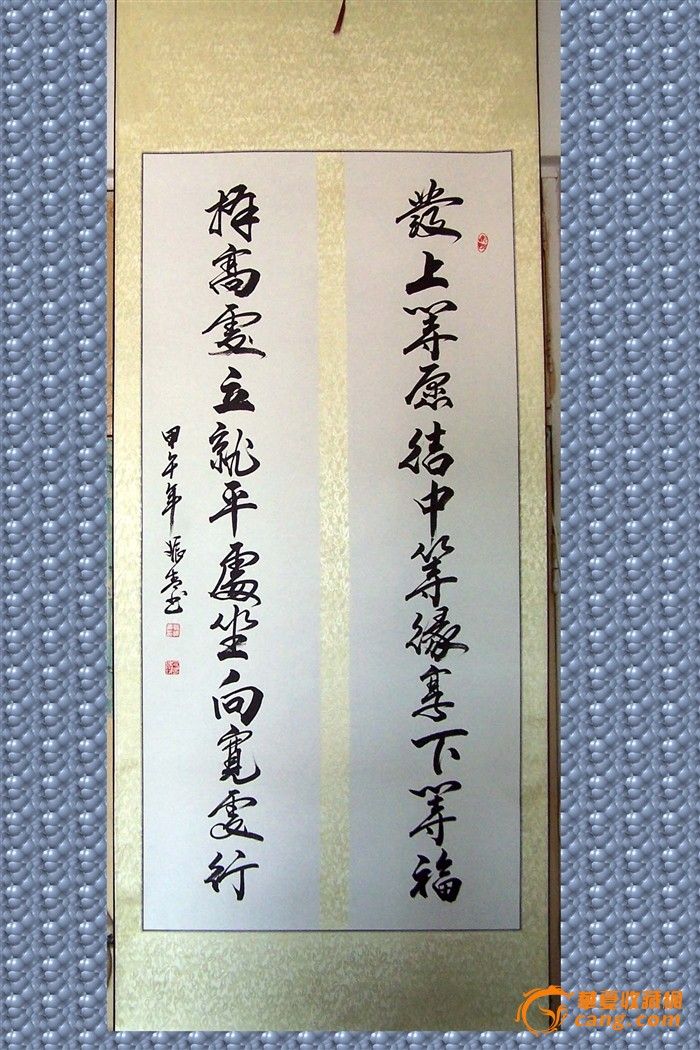 發上等愿结中等缘享下等福
择高處立就平處坐向寬處行
甲午年
華夏收藏網
cang.com